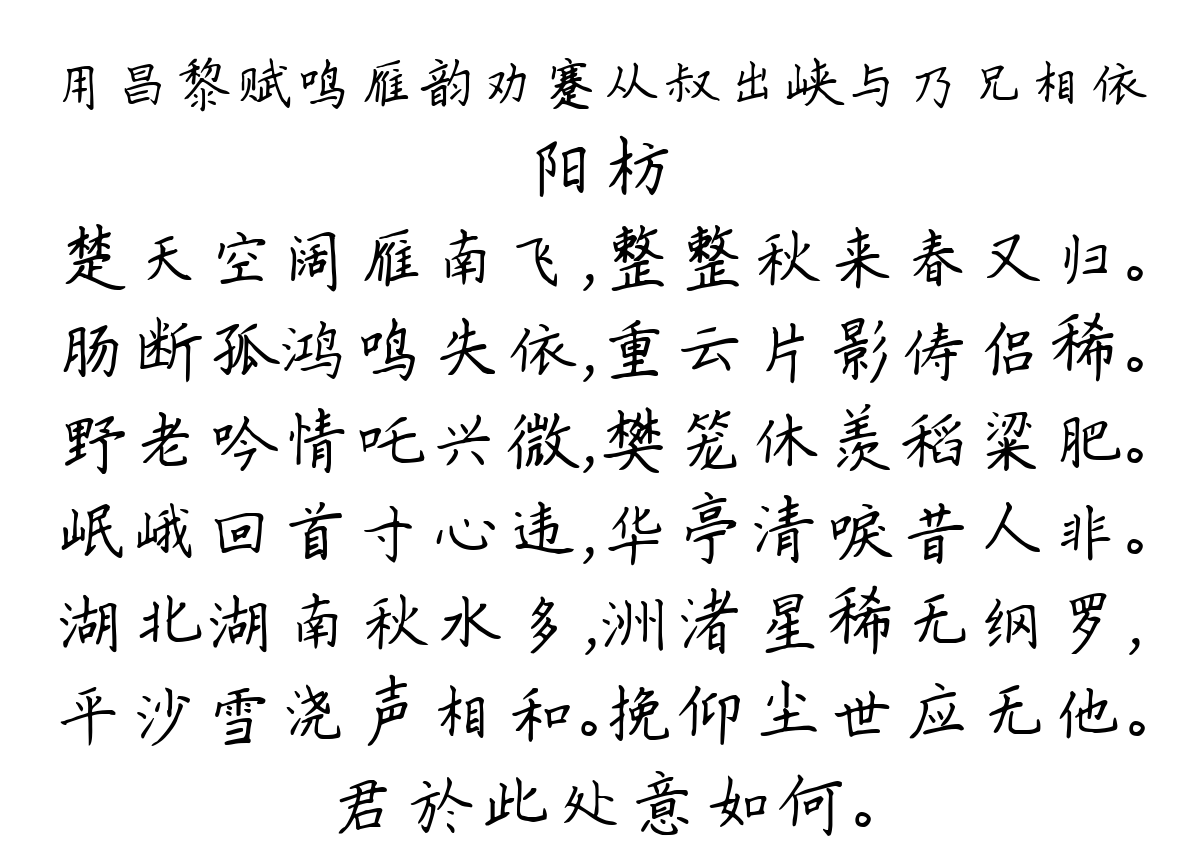 用昌黎赋鸣雁韵劝蹇从叔出峡与乃兄相依
阳枋
楚天空阔雁南飞,整整秋来春又归。
肠断孤鸿鸣失依,重云片影俦侣稀。
野老吟情吒兴微,樊笼休羡稻粱肥。
岷峨回首寸心违,华亭清唳昔人非。
湖北湖南秋水多,洲渚星稀无纲罗,
平沙雪浇声相和。挽仰尘世应无他。
君於此处意如何。